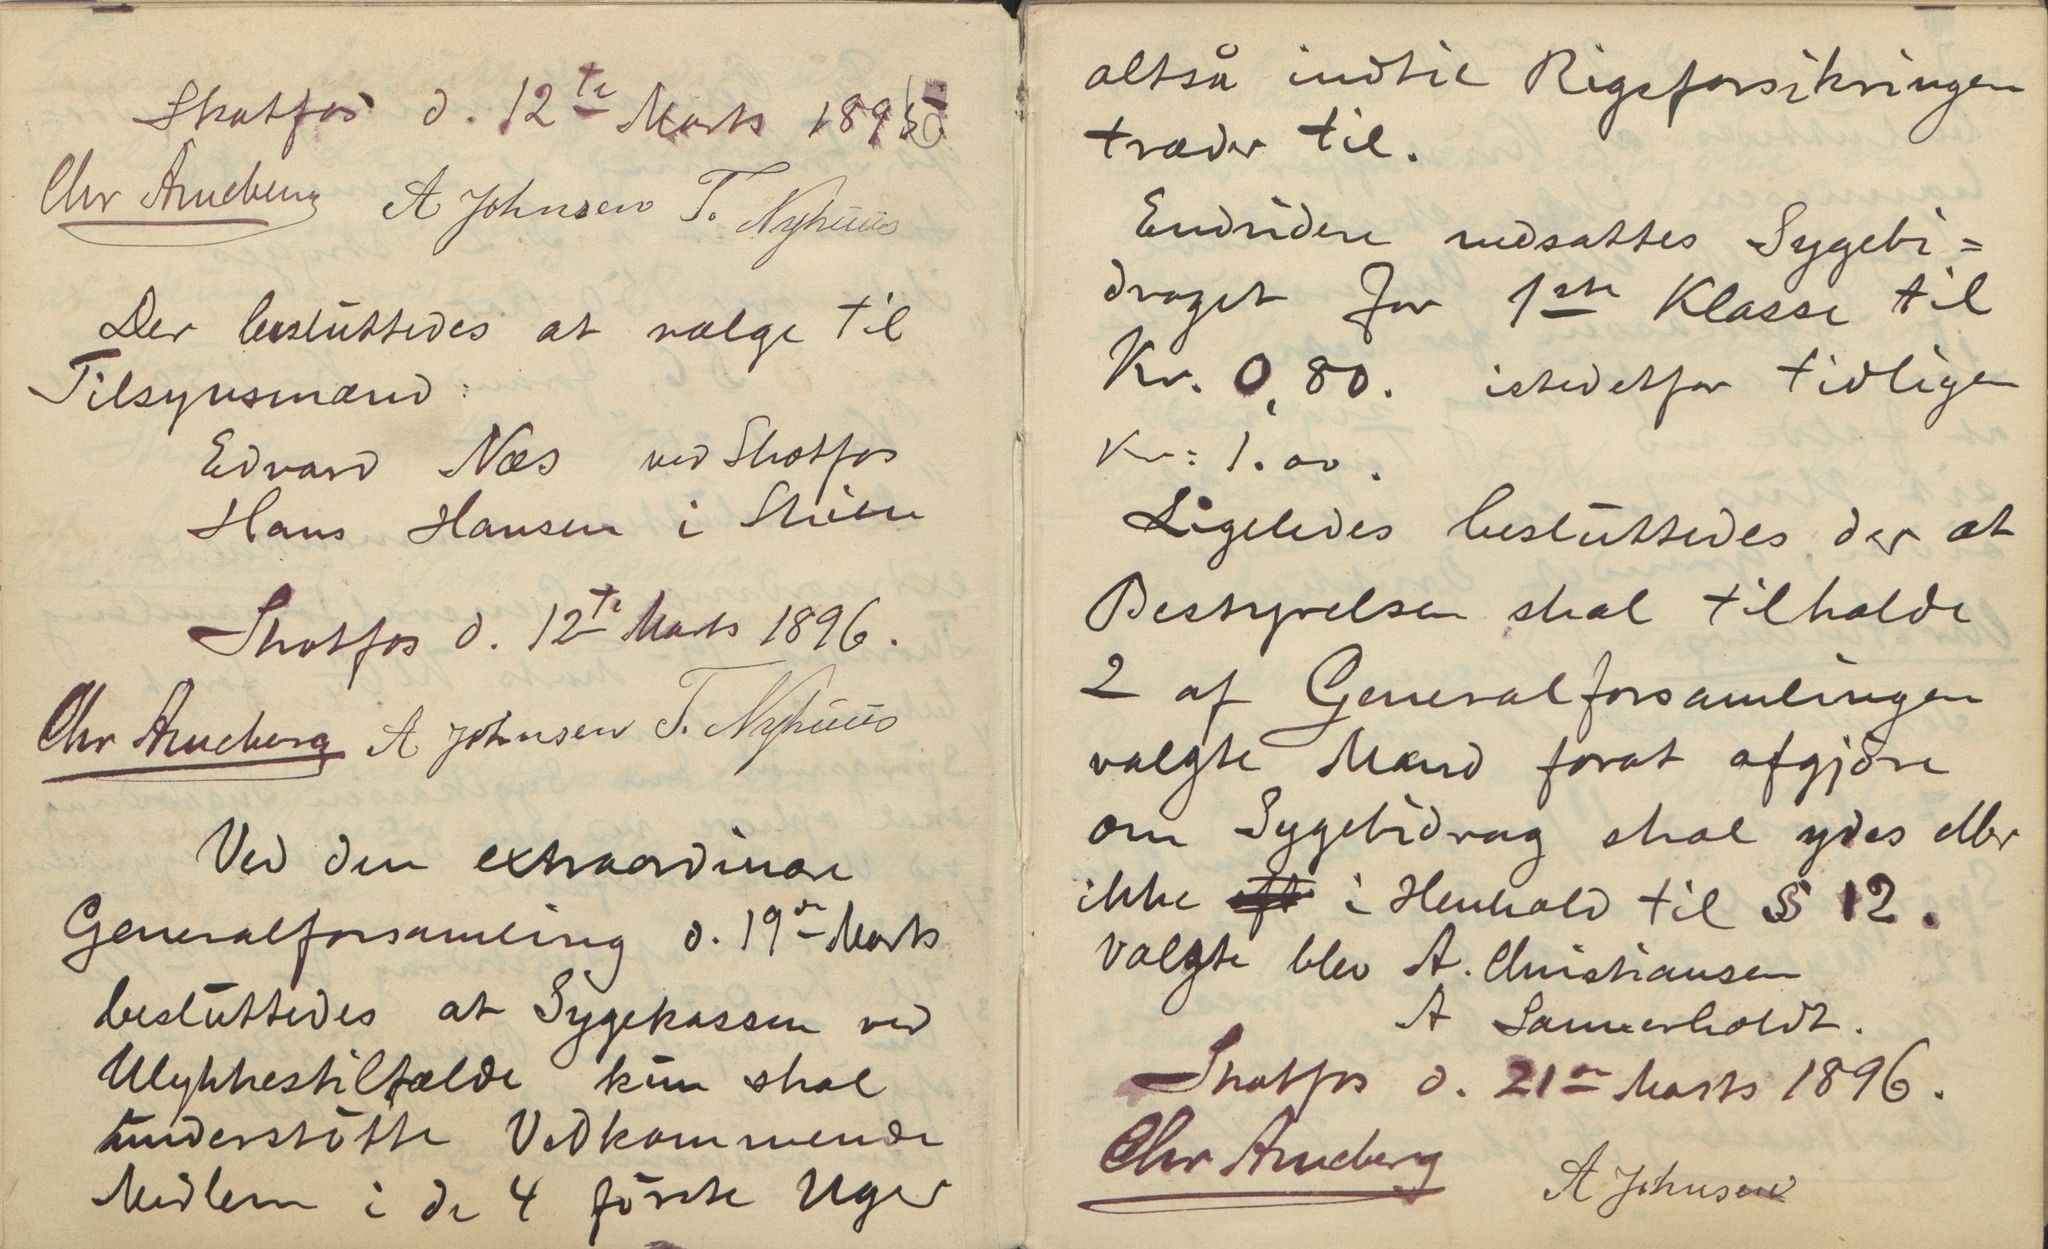 Skotfos d. 12te Marts 1896
Chr Arneberg A Johnsen T. Nyhuus
Der besluttedes at vælge til
Tilsynsmænd:
Edvard Næs ved Skotfos
Hans Hansen i Skien
Skotfos d. 12te Marts 1896.
Chr Arneberg A Johnsen T. Nyhuus
Ved den extraordinære
Generalforsamling d. 19de Marts
besluttedes at Sygekassen ved
Ulykkestilfælde kun skal
understötte Vedkommende
Medlem i de 4 förste Uger
altså indtil Rigsforsikringen
træder til.
Endvidere nedsattes Sygebi=
draget for 1ste Klasse til
Kr. 0,80. istedetfor tidligere
Kr: 1.00.
Ligeledes besluttedes der at
Bestyrelsen skal tilholde
2 af Generalforsamlingen
valgte Mænd forat afgjöre
om Sygebidrag skal ydes eller
ikke i Henhold til § 12.
Valgte blev A. Christiansen
A Sannerholdt.
Skotfos d. 21de Marts 1896.
Chr Arneberg A Johnsen